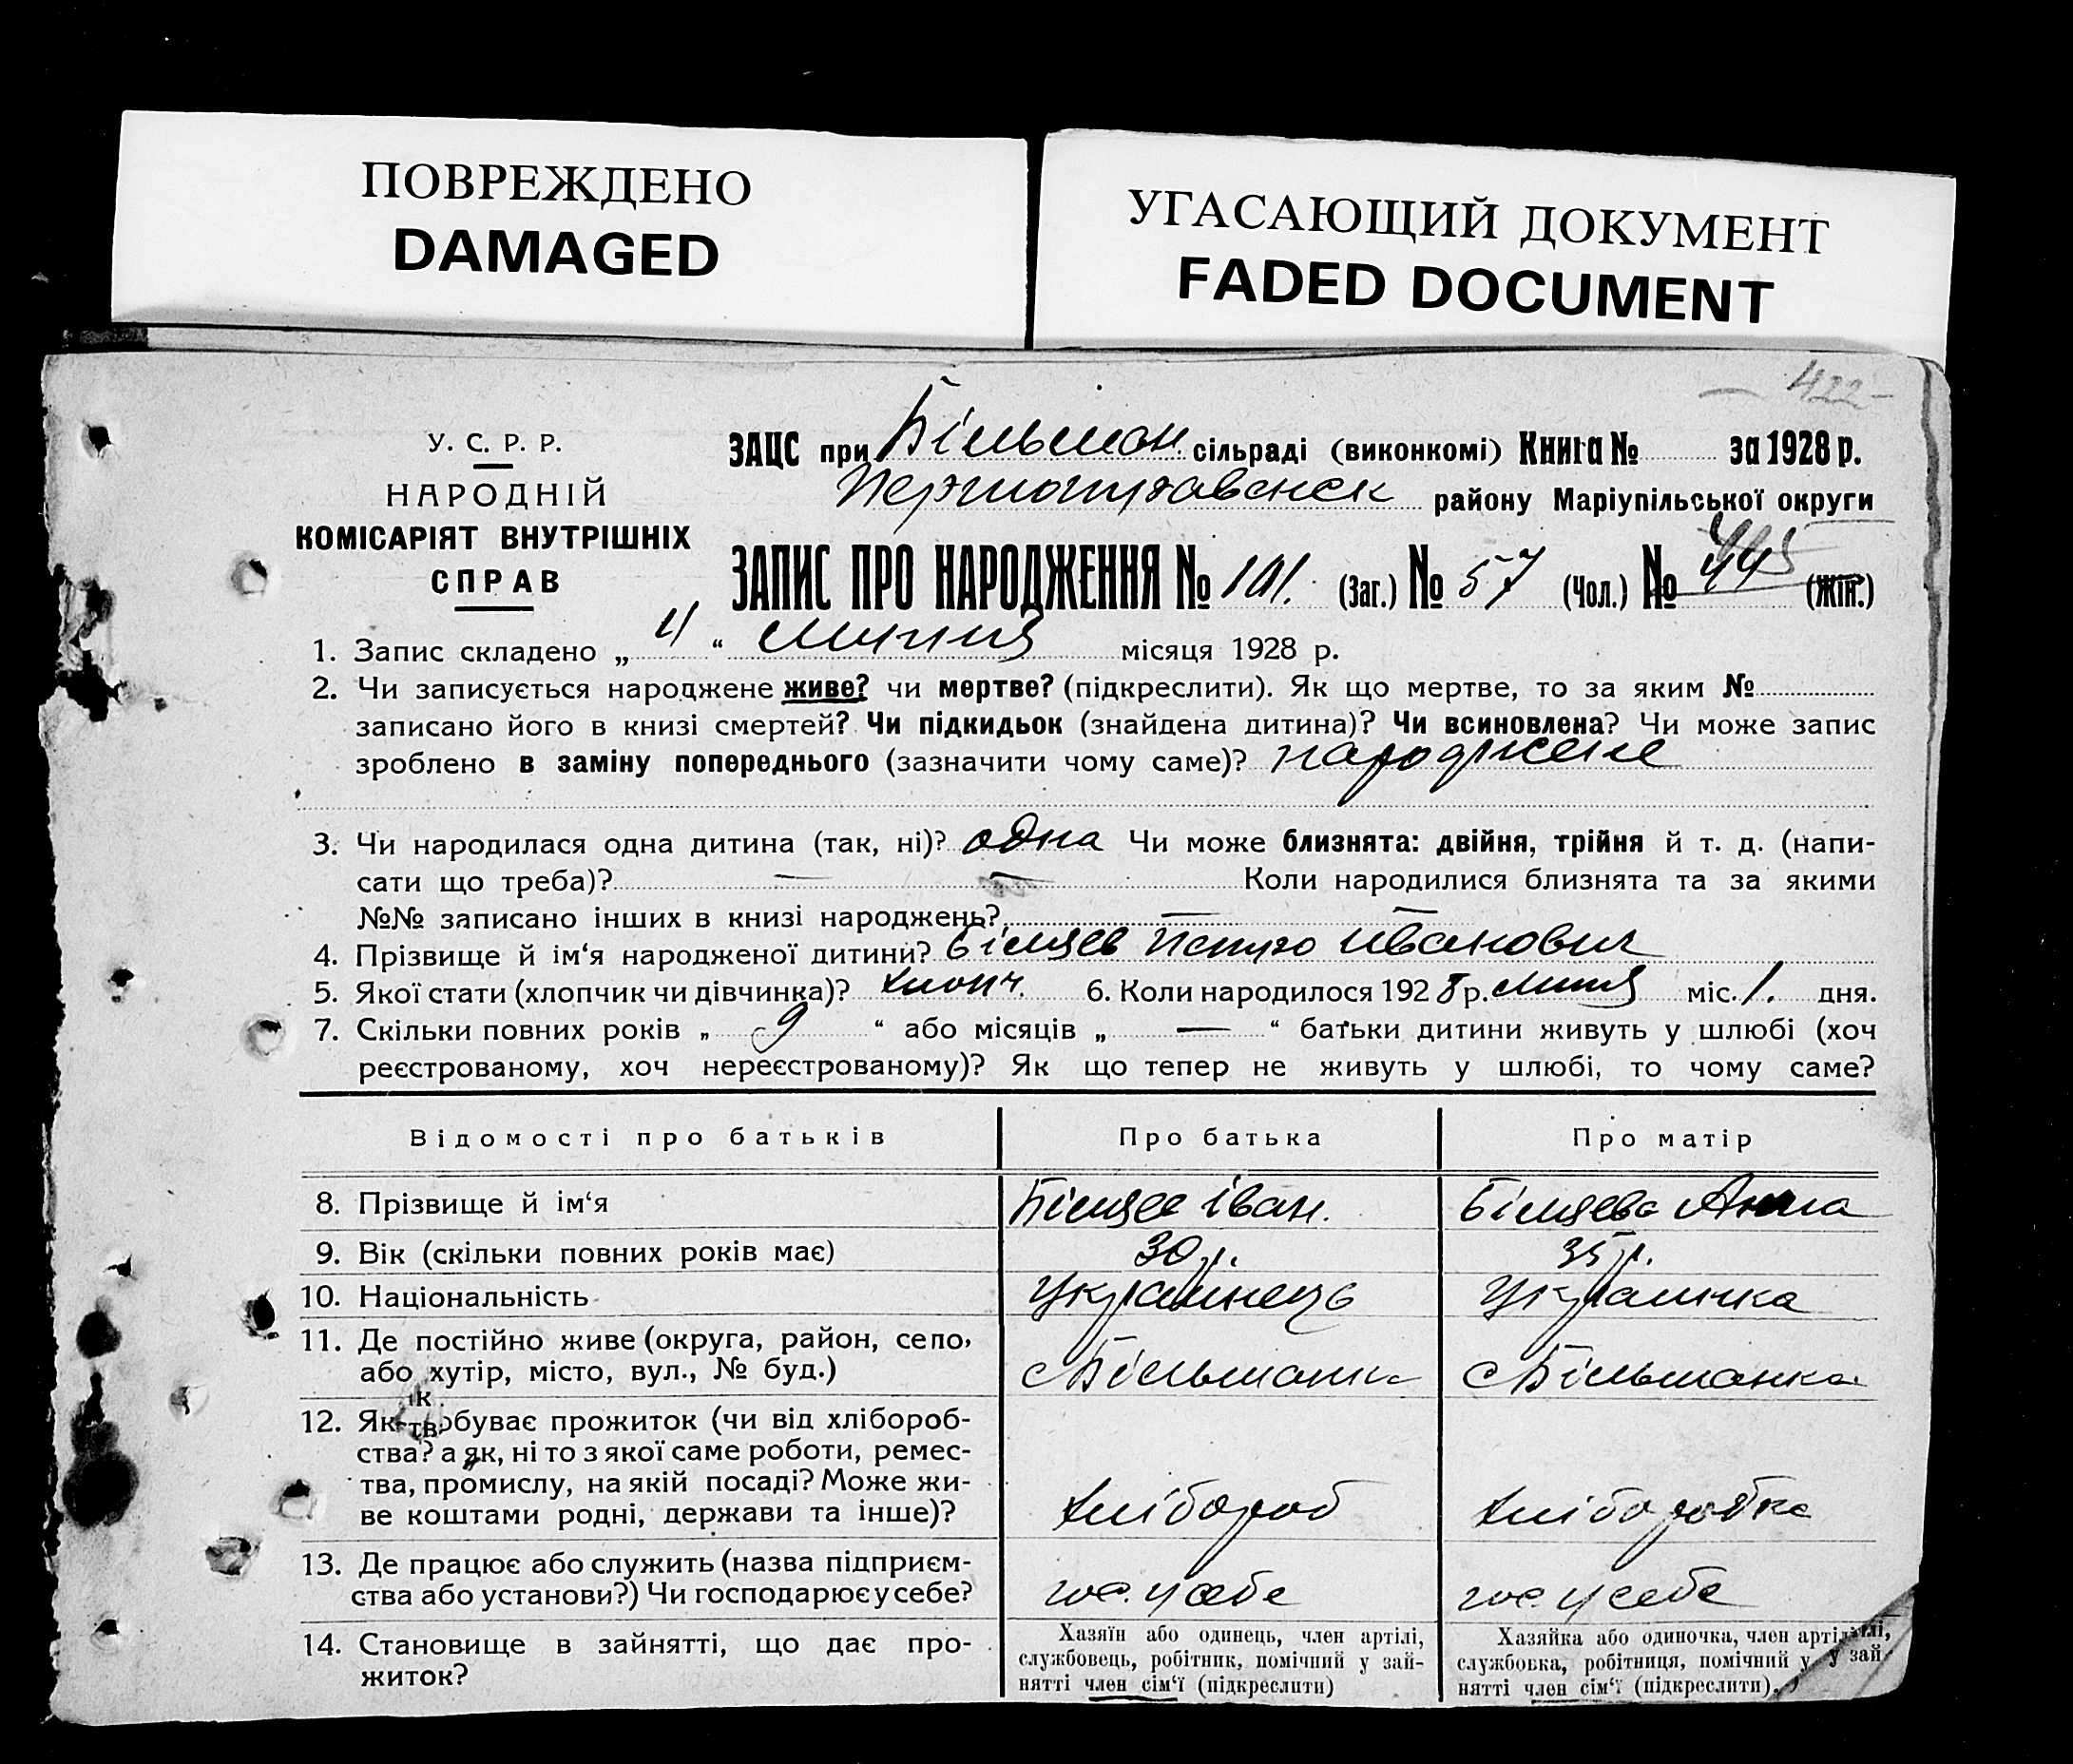 ПОВРЕЖДЕНО
DAMAGED
УГАСАЮЩИЙ ДОКУМЕНТ
FADED DOCUMENT
— 422 —
У. С. Р. Р.
НАРОДНІЙ
КОМІСАРІЯТ ВНУТРІШНІХ
СПРАВ
ЗАЦС при Більман. сільраді (виконкомі) Книга № за 1928 р.
району Маріупільської округи
ЗАПИС ПРО НАРОДЖЕННЯ № 101. (Заг.) № 57 (Чол.) № 44 (Жін.)
1. Запис складено „ 4 “ липня місяця 1928 р.
2. Чи записується народжене живе? чи мертве? (підкреслити). Як що мертве, то за яким №
записано його в книзі смертей? Чи підкидьок (знайдена дитина)? Чи всиновлена? Чи може запис
зроблено в заміну попереднього (зазначити чому саме)? народжене
3. Чи народилася одна дитина (так, ні)? одна Чи може близнята: двійня, трійня й т. д. (напи-
сати що треба)? — — Коли народилися близнята та за якими
№№ записано інших в книзі народжень? — —
4. Прізвище й ім‘я народженої дитини? Білцев Петро Іванович
5. Якої стати (хлопчик чи дівчинка)? хлопч. 6. Коли народилося 1928 р. липня міс. 1. дня.
7. Скільки повних років „ 9 “ або місяців „ — “ батьки дитини живуть у шлюбі (хоч
реєстрованому, хоч нереєстрованому)? Як що тепер не живуть у шлюбі, то чому саме?
Відомості про батьків
Про батька
Про матір
8. Прізвище й ім‘я
Білцев Іван.
Білцева Анна
9. Вік (скільки повних років має)
30 р.
35 р.
10. Національність
Українець
Українка
11. Де постійно живе (округа, район, село,
або хутір, місто, вул., № буд.)
с Більманка
с Більманка
12. Як обуває прожиток (чи від хлібороб-
ства? а як, ні то з якої саме роботи, ремес-
тва, промислу, на якій посаді? Може жи-
ве коштами родні, держави та інше)?
хлібороб
хліборобка
13. Де працює або служить (назва підприєм-
ства або установи?) Чи господарює у себе?
гос. у себе
гос. у себе
14. Становище в зайнятті, що дає про-
житок?
Хазяїн або одинець, член артілі,
службовець, робітник, помічний у зай-
нятті член сім‘ї (підкреслити)
Хазяйка або одиночка, член артілі,
службовка, робітниця, помічний у зай-
нятті член сім‘ї (підкреслити).